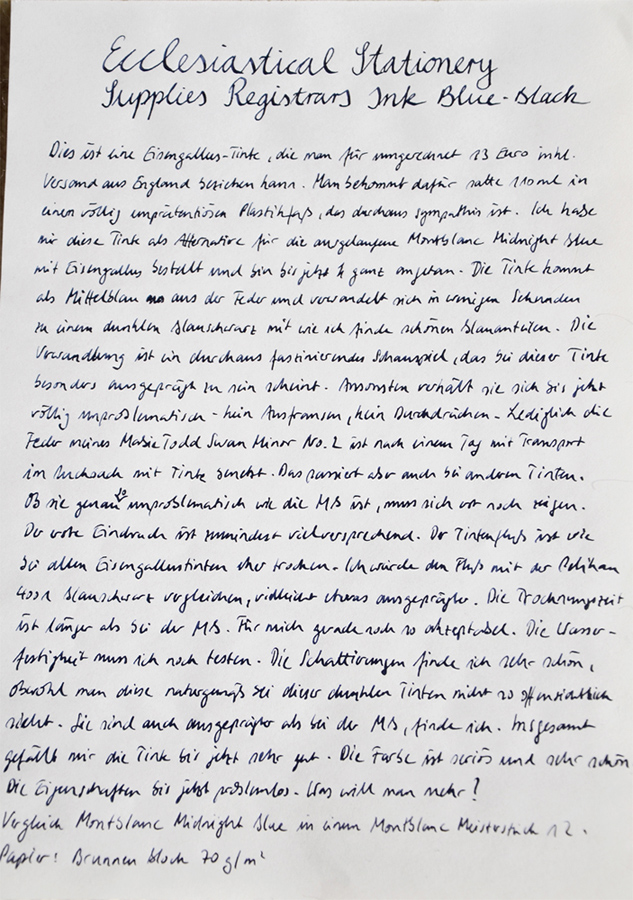 Ecclesiastical Stationery
Supplies Registrars Ink Blue-Black
Dies ist eine Eisengallus-Tinte, die man für umgerechnet 13 Euro inkl.
Versand aus England beziehen kann. Man bekommt dafür satte 110ml in
einem völlig unprätentiösen Plastikfaß, das durchaus sympathis ist. Ich habe
mir diese Tinte als Alternative für die ausgelaufene Montblanc Midnight Blue
mit Eisengallus bestellt und bin bis jetzt ganz angetan. Die Tinte kommt
als Mittelblau aus der Feder und verwandelt sich in wenigen Sekunden
zu einem dunklen Blauschwarz mit wie ich finde schönen Blauanteilen. Die
Verwandlung ist ein durchaus faszinierendes Schauspiel, das bei dieser Tinte
besonders ausgeprägt zu sein scheint. Ansonsten verhält sie sich bis jetzt
völlig unproblematisch - kein Ausfransen, kein Durchdrücken. Lediglich die
Feder meines Mabie Todd Swan Minor No. 2 ist nach einem Tag mit Transport
im Rucksack mit Tinte benetzt. Das passiert aber auch bei anderen Tinten.
Ob sie genau so unproblematisch wie die MB ist, muss sich erst noch zeigen.
Der erste Eindruck ist zumindest vielversprechend. Der Tintenfluß ist wie
bei allen Eisengallustinten eher trocken. Ich würde den Fluß mit der Pelikan
4001 Blauschwarz vergleichen, vielleicht etwas ausgeprägter. Die Trocknungszeit
ist länger als bei der MB. Für mich gerade noch so akzeptabel. Die Wasser-
festigkeit muss ich noch testen. Die Schattierungen finde ich sehr schön,
obwohl man diese naturgemäß bei dieser dunklen Tinten nicht so offensichtlich
sieht. Sie sind auch ausgeprägter als bei der MB, finde ich. Insgesamt
gefällt mir die Tinte bis jetzt sehr gut. Die Farbe ist seriös und sehr schön
Die Eigenschaften bis jetzt problemlos. Was will man mehr?
Vergleich Montblanc Midnight Blue in einem MontBlanc Meisterstück 12.
Papier: Brunnen Block 70 g/m²